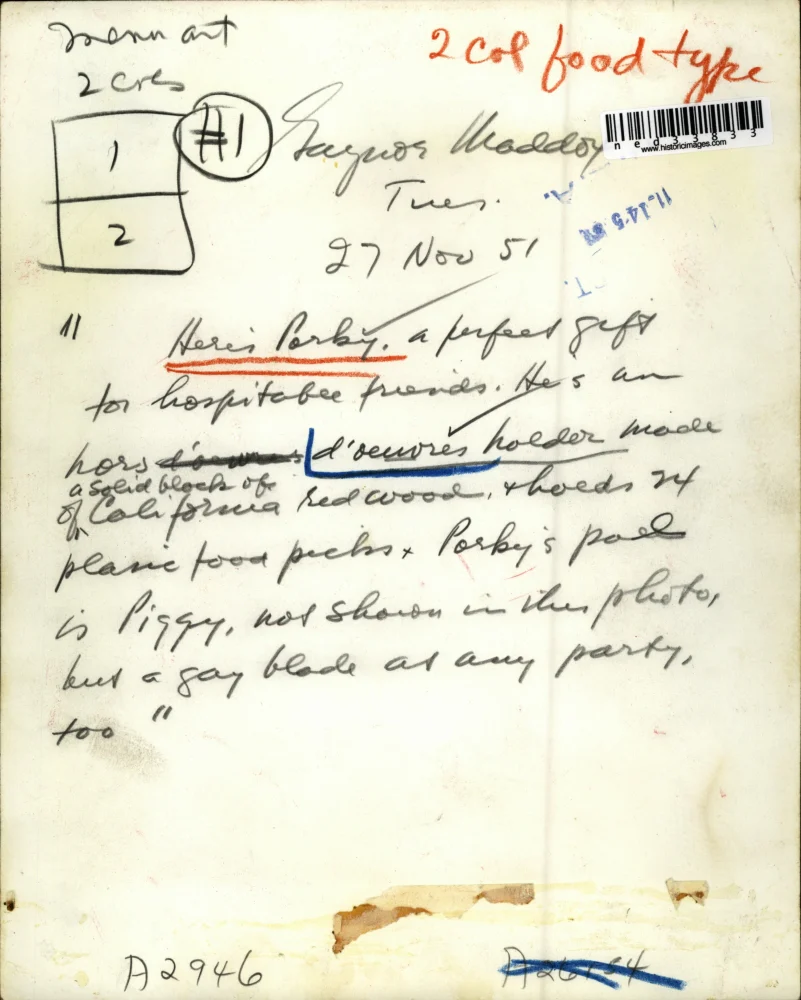 menu art
2 cols
2 col food type
1
2
#1
Gaynor Maddox
ned33833
www.historicimages.com
Tues.
27 Nov 51
" Here's Porky. a perfect gift
for hospitable friends. He's an
hors d'oeuvres d'oeuvres holder made
a solid block of
of California redwood, & holds 24
plasic food picks. Porky's pal
is Piggy, not shown in this photo,
but a gay blade at any party,
too "
A2946